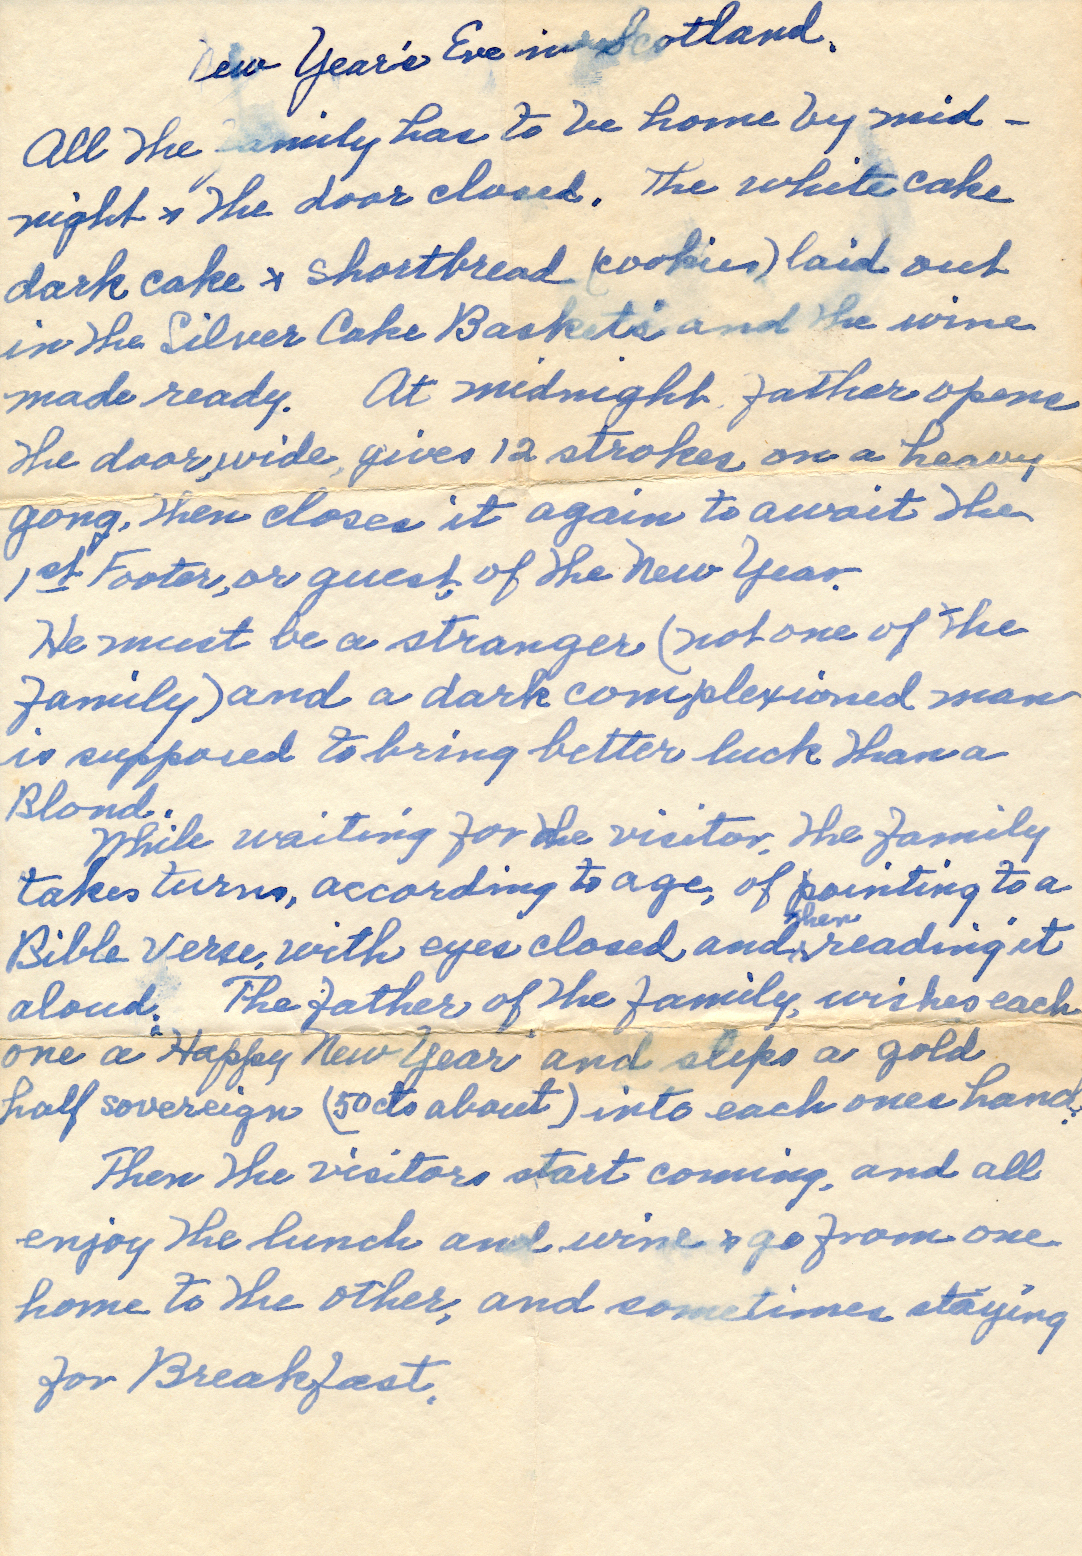 New Year's Eve in Scotland.
All the family has to be home by mid -
night & the door closed. The white cake
dark cake & shortbread (cookies) laid out
in the Silver Cake Baskets and the wine
made ready. At midnight father opens
the door, wide, gives 12 strokes on a heavy
gong, then closes it again to await the
1st Footer, or guest, of the New Year.
He must be a stranger (not one of the
family) and a dark complexioned man
is supposed to bring better luck than a
Blond.
While waiting for the visitor, the family
takes turns, according to age, of pointing to a
Bible Verse, with eyes closed and then reading it
aloud. The father of the family, wishes each
one a "Happy New Year" and slips a gold
half sovereign (50cts about) into each ones hand.
Then the visitors start coming, and all
enjoy the lunch and wine & go from one
home to the other, and sometimes staying
for Breakfast.